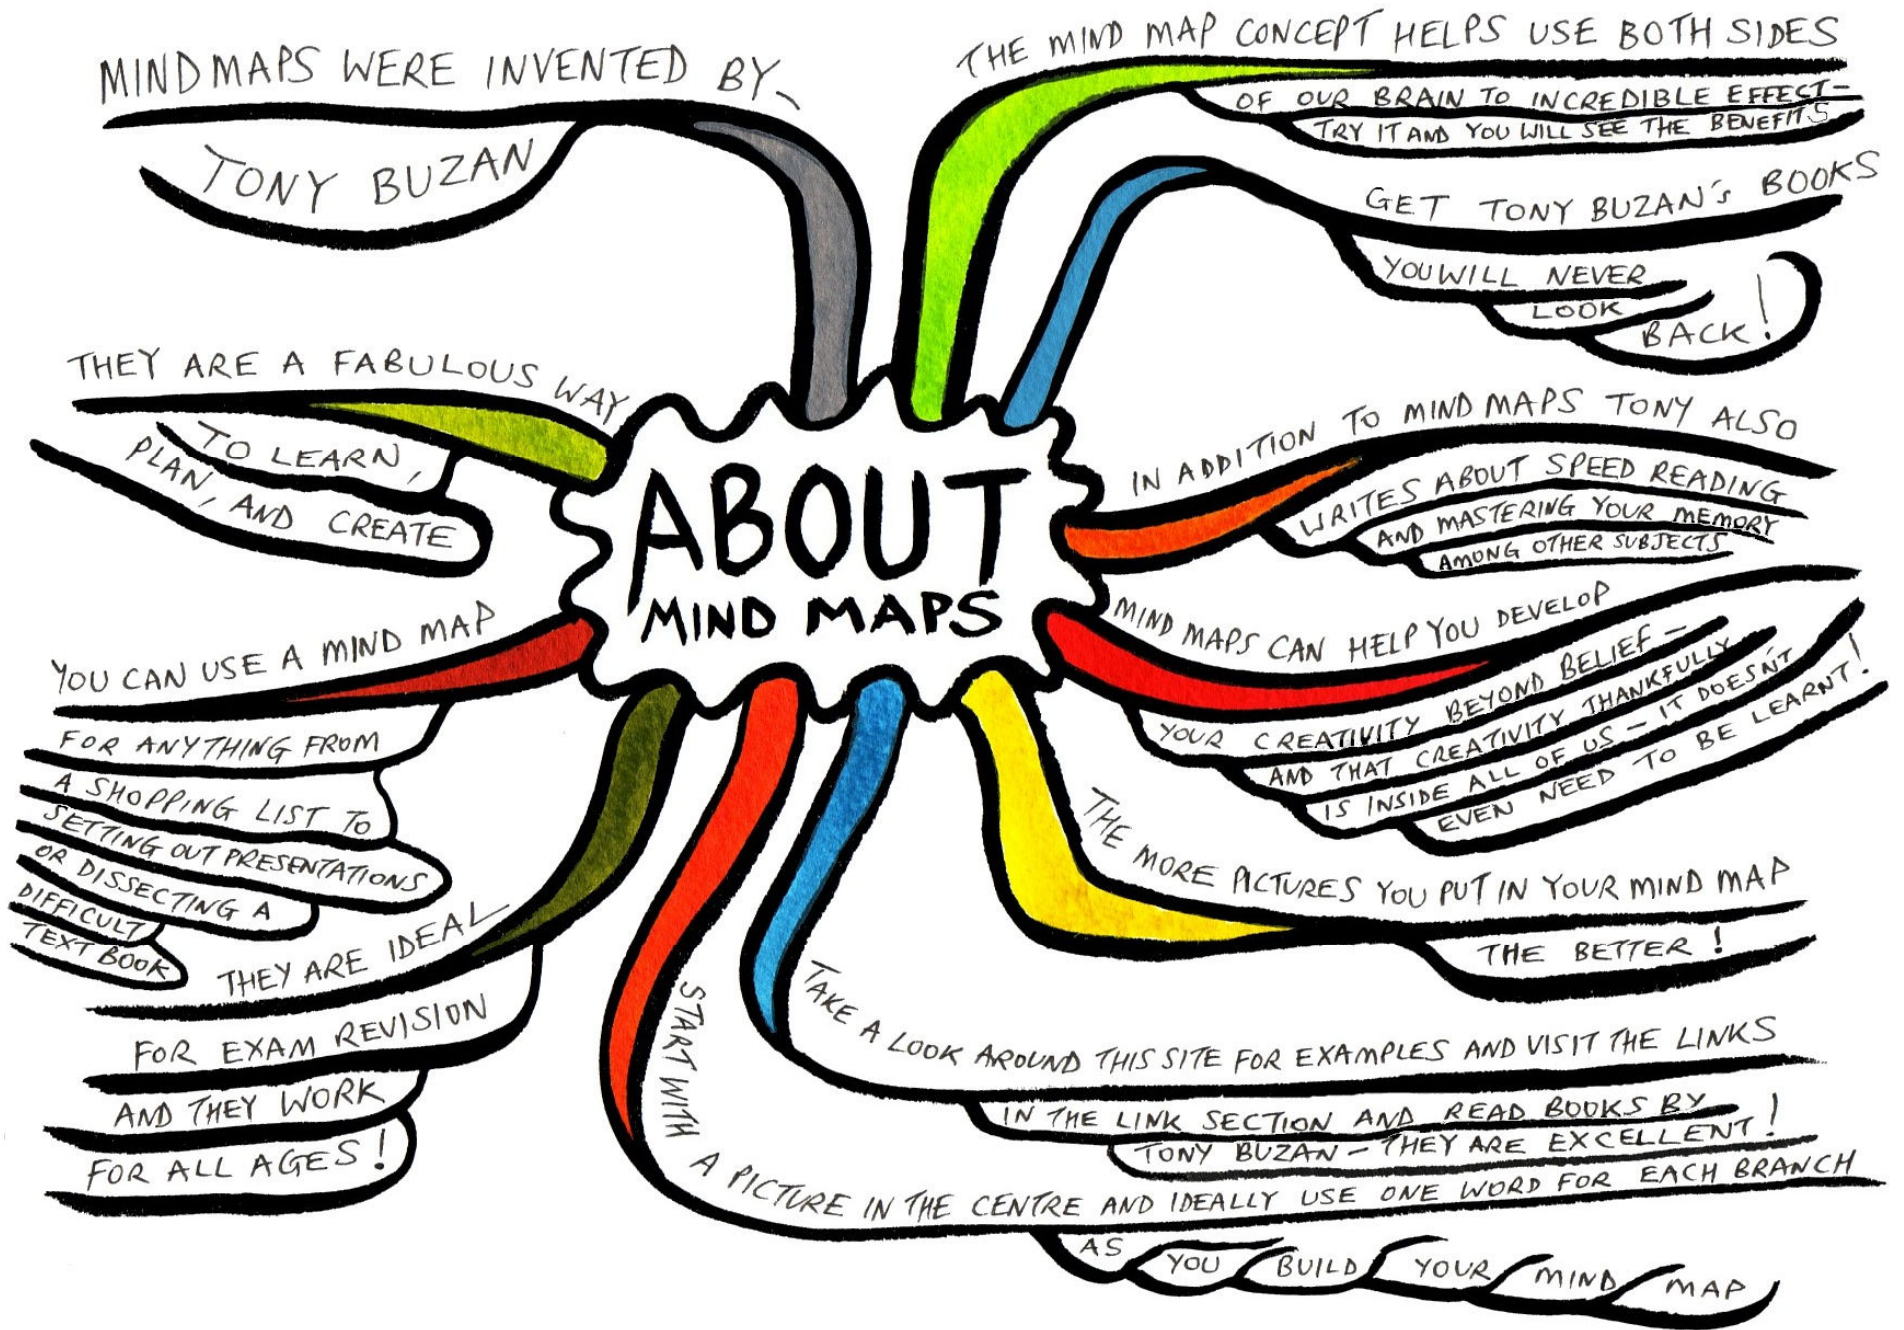 ABOUT
MIND MAPS
THE MIND MAP CONCEPT HELPS USE BOTH SIDES
OF OUR BRAIN TO INCREDIBLE EFFECT-
TRY IT AND YOU WILL SEE THE BENEFITS
GET TONY BUZAN'S BOOKS
YOU WILL NEVER
LOOK
BACK!
IN ADDITION TO MIND MAPS TONY ALSO
WRITES ABOUT SPEED READING
AND MASTERING YOUR MEMORY
AMONG OTHER SUBJECTS
MIND MAPS CAN HELP YOU DEVELOP
YOUR CREATIVITY BEYOND BELIEF -
AND THAT CREATIVITY THANKFULLY
IS INSIDE ALL OF US - IT DOESN'T
EVEN NEED TO BE LEARNT!
THE MORE PICTURES YOU PUT IN YOUR MIND MAP
THE BETTER!
TAKE A LOOK AROUND THIS SITE FOR EXAMPLES AND VISIT THE LINKS
IN THE LINK SECTION AND READ BOOKS BY
TONY BUZAN - THEY ARE EXCELLENT!
START WITH A PICTURE IN THE CENTRE AND IDEALLY USE ONE WORD FOR EACH BRANCH
AS YOU BUILD YOUR MIND MAP
THEY ARE IDEAL
FOR EXAM REVISION
AND THEY WORK
FOR ALL AGES!
YOU CAN USE A MIND MAP
FOR ANYTHING FROM
A SHOPPING LIST TO
SETTING OUT PRESENTATIONS
OR DISSECTING A
DIFFICULT
TEXT BOOK
THEY ARE A FABULOUS WAY
TO LEARN,
PLAN, AND CREATE
MIND MAPS WERE INVENTED BY-
TONY BUZAN